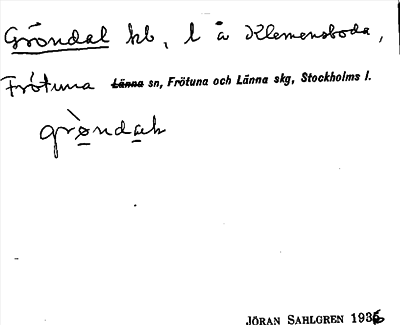 Gröndal hb, l å Klemensboda,
Frötuna Länna sn, Frötuna och Länna skg, Stockholms l.
grò̱nda̱h
JÖRAN SAHLGREN 1936